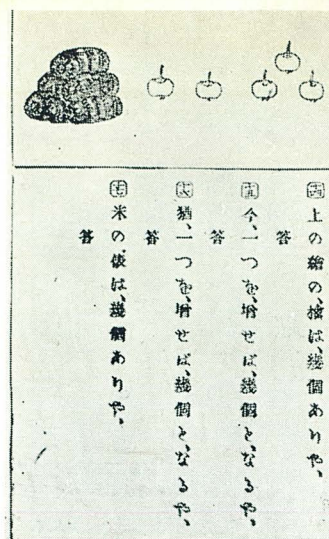 十四 上の繪の、柿は、幾個ありや、
答
十五 今、一つを、増せば、幾個と、なるや、
答
十六 猶、一つを、増せば、幾個と、なるや、
答
十七 米の、俵は、幾個ありや、
答